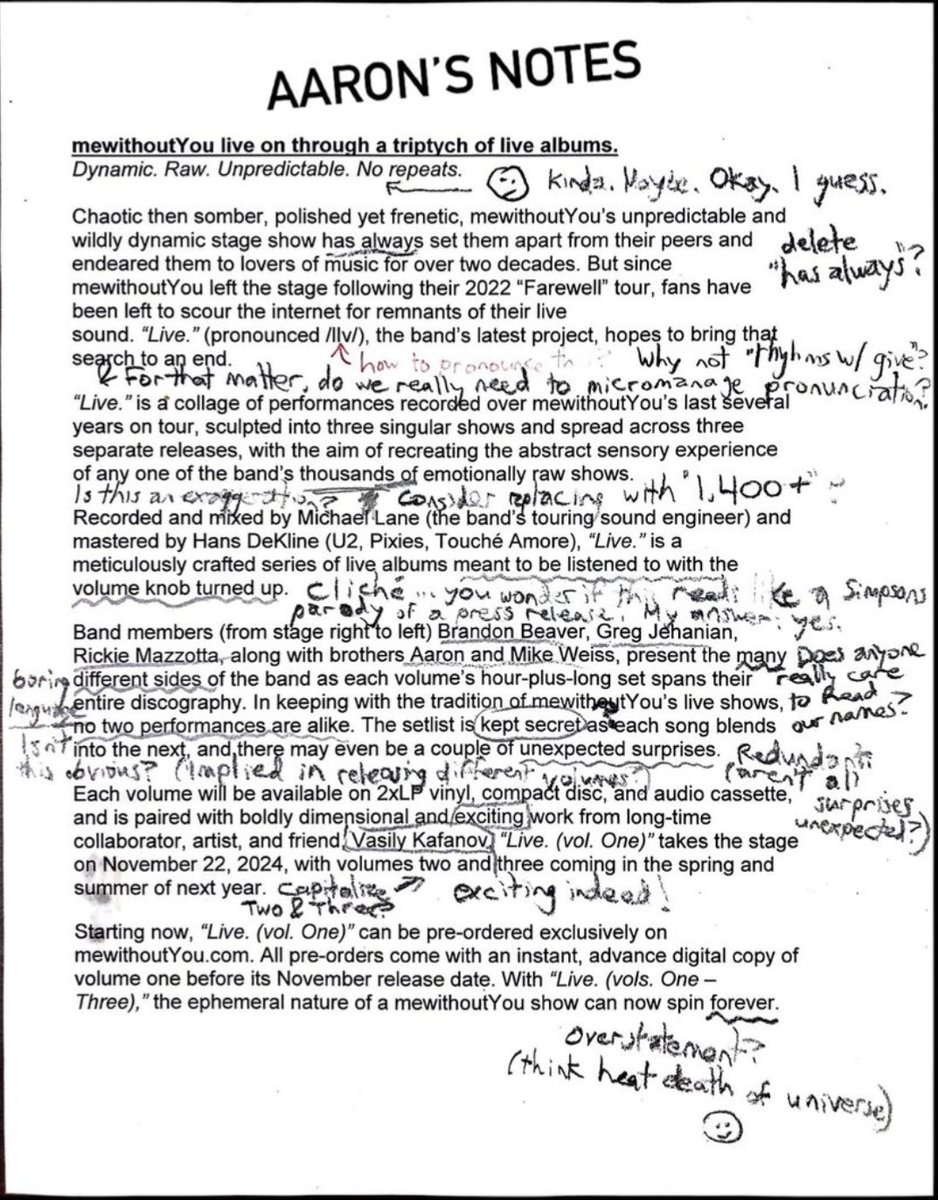 AARON'S NOTES
mewithoutYou live on through a triptych of live albums.
Dynamic. Raw. Unpredictable. No repeats.
Kinda. Maybe. Okay. I guess.
Chaotic then somber, polished yet frenetic, mewithoutYou's unpredictable and
wildly dynamic stage show has always set them apart from their peers and
delete
"has always"?
endeared them to lovers of music for over two decades. But since
mewithoutYou left the stage following their 2022 "Farewell" tour, fans have
been left to scour the internet for remnants of their live
sound. "Live." (pronounced /lIv/), the band's latest project, hopes to bring that
search to an end.
how to pronounce this?
Why not "rhyhms w/ give"?
& For that matter, do we really need to micromanage pronunciation?
"Live." is a collage of performances recorded over mewithoutYou's last several
years on tour, sculpted into three singular shows and spread across three
separate releases, with the aim of recreating the abstract sensory experience
of any one of the band's thousands of emotionally raw shows.
Is this an exaggeration? Consider replacing with "1,400+"?
Recorded and mixed by Michael Lane (the band's touring sound engineer) and
mastered by Hans DeKline (U2, Pixies, Touché Amore), "Live." is a
meticulously crafted series of live albums meant to be listened to with the
volume knob turned up.
Cliché... you wonder if this reads like a Simpsons
parody of a press release. My answer: yes.
Band members (from stage right to left) Brandon Beaver, Greg Jehanian,
Rickie Mazzotta, along with brothers Aaron and Mike Weiss, present the many
different sides of the band as each volume's hour-plus-long set spans their
entire discography. In keeping with the tradition of mewithoutYou's live shows,
no two performances are alike. The setlist is kept secret as each song blends
into the next, and there may even be a couple of unexpected surprises.
Does anyone
really care
to read
our names?
boring
language
Isn't
this obvious? (Implied in releasing different volumes?)
Redundant
(aren't all
surprises
unexpected?)
Each volume will be available on 2xLP vinyl, compact disc, and audio cassette,
and is paired with boldly dimensional and exciting work from long-time
collaborator, artist, and friend, Vasily Kafanov. "Live. (vol. One)" takes the stage
on November 22, 2024, with volumes two and three coming in the spring and
summer of next year.
Capitalize
Two & Three?
exciting indeed!
Starting now, "Live. (vol. One)" can be pre-ordered exclusively on
mewithoutYou.com. All pre-orders come with an instant, advance digital copy of
volume one before its November release date. With "Live. (vols. One –
Three)," the ephemeral nature of a mewithoutYou show can now spin forever.
Overstatement?
(think heat death of universe)